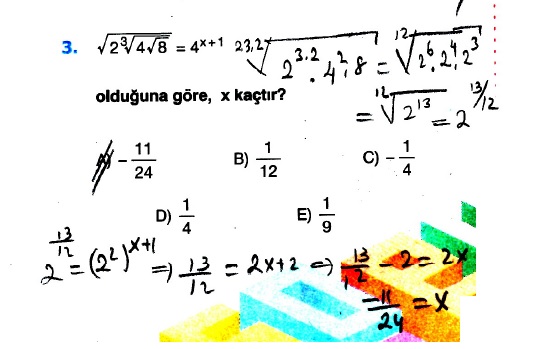 3. √(2∛(4√8)) = 4^(x+1) ²³·²√(2^(3.2) . 4² . 8) = ¹²√(2⁶ . 2⁴ . 2³)
olduğuna göre, x kaçtır? = ¹²√(2¹³) = 2^(13/12)
A) -11/24 B) 1/12 C) -1/4
D) 1/4 E) 1/9
2^(13/12) = (2²)^(x+1) ⇒ 13/12 = 2x+2 ⇒ 13/12 - 2 = 2x
-11/24 = x